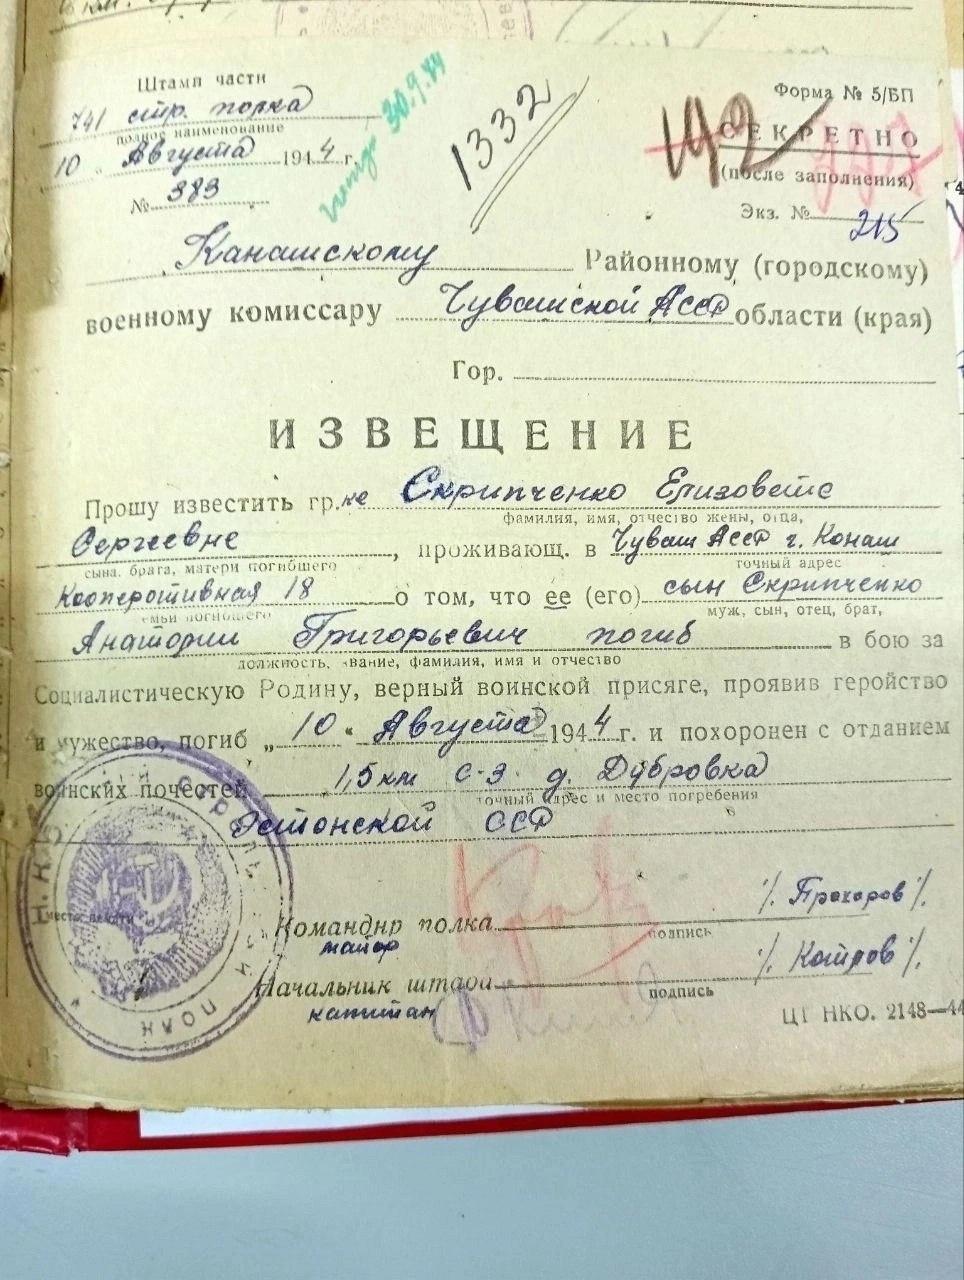 Штамп части
741 стр. полка
полное наименование
10 „ Августа 1944 г.
№ 383
30.9.44
1332
Форма № 5/БП
СЕКРЕТНО
192
(после заполнения)
Экз. № 215
Канашскому Районному (городскому)
военному комиссару Чувашской АССР области (края)
Гор.
ИЗВЕЩЕНИЕ
Прошу известить гр.ке Скрипченко Елизовете
фамилия, имя, отчество жены, отца,
Сергеевне, проживающ. в Чуваш АССР г. Конаш
сына, брата, матери погибшего точный адрес
Кооперотивная 18 о том, что ее (его) сын Скрипченко
семьи погибшего муж, сын, отец, брат,
Анатолии Григорьевич погиб в бою за
должность, звание, фамилия, имя и отчество
Социалистическую Родину, верный воинской присяге, проявив геройство
и мужество, погиб „10“ Августа 1944 г. и похоронен с отданием
воинских почестей 1,5 км с-з д. Дубровка
точный адрес и место погребения
Эстонской ССР
место печати
Командир полка /. Прохоров /.
майор подпись
Начальник штаба /. Котров /.
капитан подпись
ЦТ НКО. 2148—44